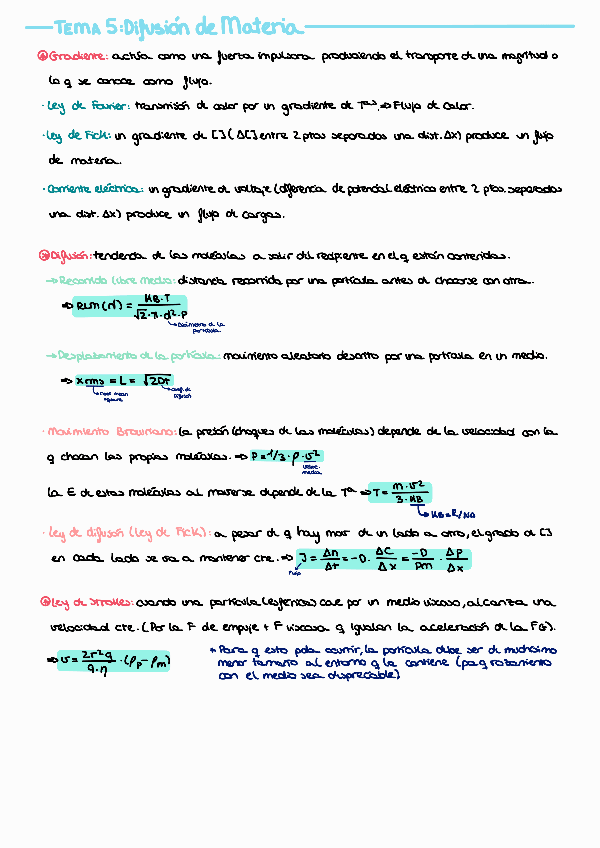 TEMA 5: Difusión de Materia
Gradiente: actúa como una fuerza impulsora produciendo el transporte de una magnitud o
la q se conoce como flujo.
· Ley de Fourier: transmisión de calor por un gradiente de Tªs. ⇒ Flujo de Calor.
· Ley de Fick: un gradiente de [ ] (Δ[ ] entre 2 ptos separados una dist. Δx) produce un flujo
de materia.
· Corriente eléctrica: un gradiente de voltaje (diferencia de potencial eléctrico entre 2 ptos. separados
una dist. Δx) produce un flujo de cargas.
Difusión: tendencia de las moléculas a salir del recipiente en el q están contenidas.
→ Recorrido libre medio: distancia recorrida por una partícula antes de chocarse con otra.
⇒ RLM (λ) = KB·T / √2·π·d²·P
→ Diámetro de la
partícula
→ Desplazamiento de la partícula: movimiento aleatorio descrito por una partícula en un medio.
⇒ xrms = L = √2Dt
→ root mean
square
→ coef. de
difusión
· Movimiento Browniano: la presión (choques de las moléculas) depende de la velocidad con la
q chocan las propias moléculas. ⇒ P = 1/3 · ρ · v²
veloc.
media
la E de estas moléculas al moverse depende de la Tª ⇒ T = m·v² / 3·KB
→ KB = R/NA
· Ley de difusión (Ley de Fick): a pesar de q hay mov de un lado a otro, el grado de [ ]
en cada lado se va a mantener cte. ⇒ J = Δn/Δt = -D · ΔC/Δx = -D/Pm · Δρ/Δx
Flujo
Ley de Stokes: cuando una partícula (esférica) cae por un medio viscoso, alcanza una
velocidad cte. (Por la F de empuje + F viscosa q igualan la aceleración de la F(g)).
⇒ v = 2r²g / 9·η · (ρp - ρm)
* Para q esto pda ocurrir, la partícula debe ser de muchísimo
menor tamaño al entorno q la contiene (pa q rozamiento
con el medio sea despreciable)